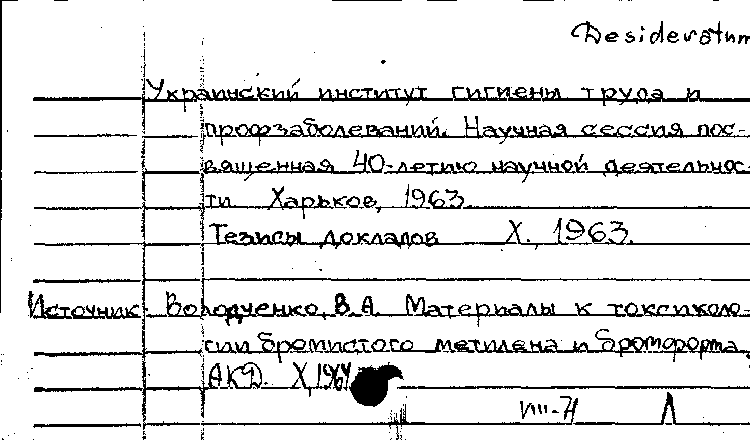 Desideratum
Украинский институт гигиены труда и
профзаболеваний. Научная сессия пос-
вященная 40-летию научной деятельнос-
ти Харьков, 1963
Тезисы докладов Х., 1963.
Источник: Володченко, В.А. Материалы к токсиколо-
гии бромистого метилена и бромоформа.
АКД. Х, 1964
VIII-71 Л